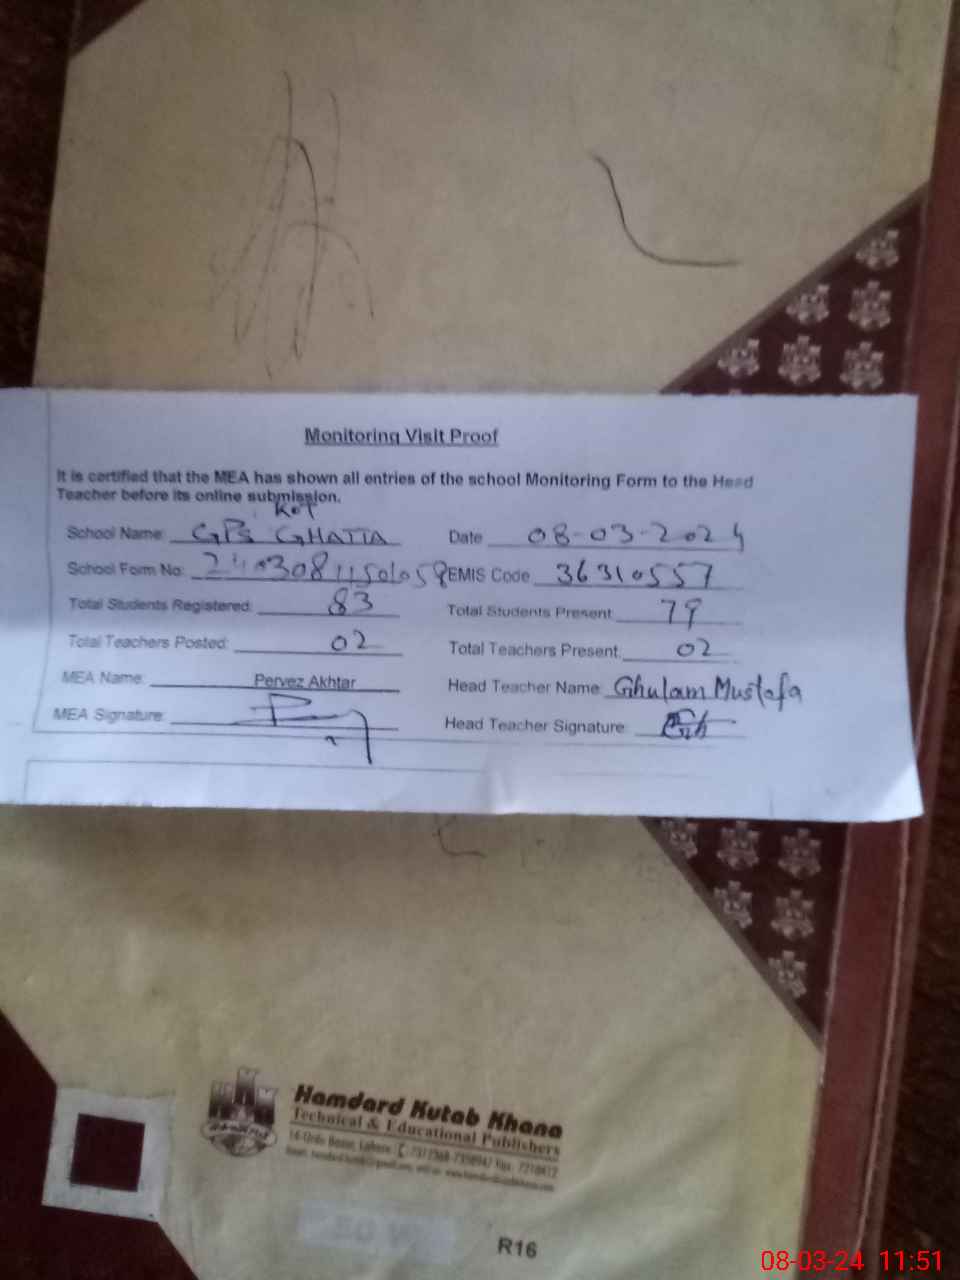 Monitoring Visit Proof
It is certified that the MEA has shown all entries of the school Monitoring Form to the Head
Teacher before its online submission.
KOT
School Name: GPS GHATIA Date 08-03-2024
School Form No: EMIS Code 36310557
Total Students Registered: 83 Total Students Present 79
Total Teachers Posted: 02 Total Teachers Present 02
MEA Name: Pervez Akhtar Head Teacher Name: Ghulam Mustafa
MEA Signature: Head Teacher Signature:
Hamdard Kutab Khana
Technical & Educational Publishers
R16
08-03-24 11:51